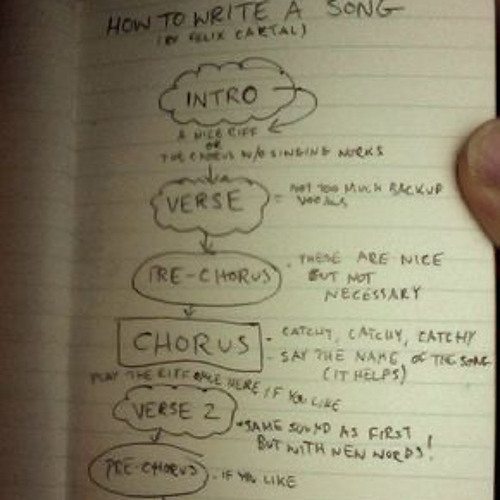 HOW TO WRITE A SONG
(BY FELIX CARTAL)
INTRO
A NICE RIFF
OR
THE CHORUS W/O SINGING WORKS
VERSE
= NOT TOO MUCH BACKUP
VOCALS
PRE-CHORUS
- THESE ARE NICE
BUT NOT
NECESSARY
CHORUS
- CATCHY, CATCHY, CATCHY
- SAY THE NAME OF THE SONG
(IT HELPS)
PLAY THE RIFF ONCE HERE IF YOU LIKE
VERSE 2
• SAME SOUND AS FIRST
BUT WITH NEW WORDS!
PRE-CHORUS
. IF YOU LIKE